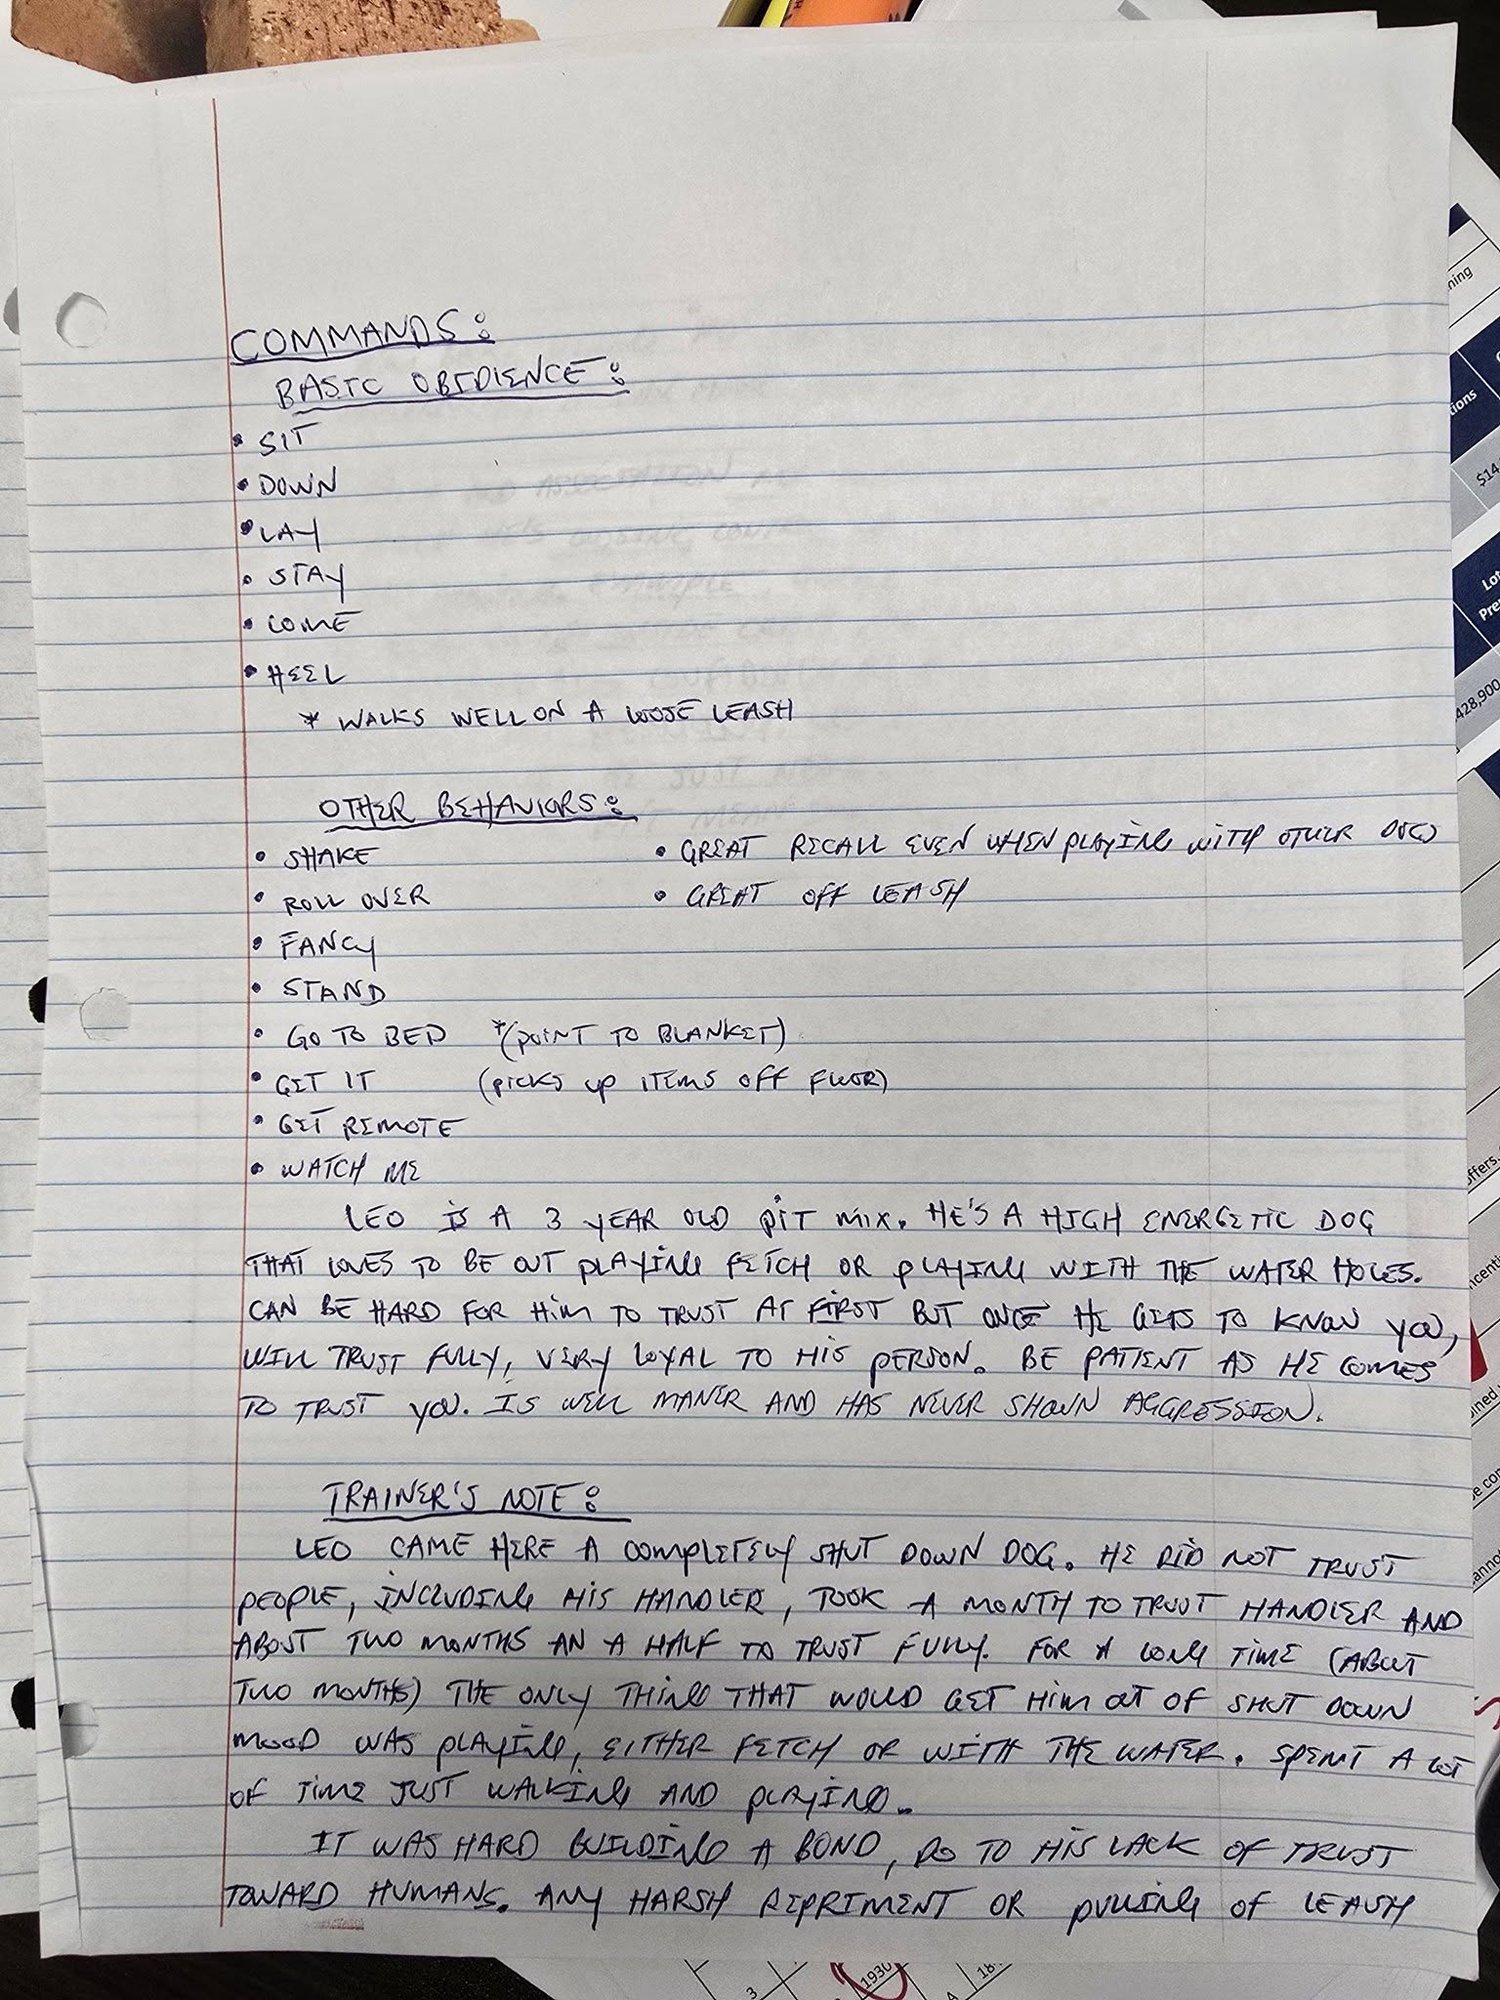 COMMANDS:
BASIC OBEDIENCE:
• SIT
• DOWN
• LAY
• STAY
• COME
• HEEL
* WALKS WELL ON A LOOSE LEASH
OTHER BEHAVIORS:
• SHAKE
• ROLL OVER
• FANCY
• STAND
• GO TO BED *(POINT TO BLANKET)
• GET IT (PICKS UP ITEMS OFF FLOOR)
• GET REMOTE
• WATCH ME
• GREAT RECALL EVEN WHEN PLAYING WITH OTHER DOGS
• GREAT OFF LEASH
LEO IS A 3 YEAR OLD PIT MIX. HE'S A HIGH ENERGETIC DOG
THAT LOVES TO BE OUT PLAYING FETCH OR PLAYING WITH THE WATER HOLES.
CAN BE HARD FOR HIM TO TRUST AT FIRST BUT ONCE HE GETS TO KNOW YOU,
WILL TRUST FULLY, VERY LOYAL TO HIS PERSON. BE PATIENT AS HE COMES
TO TRUST YOU. IS WELL MANER AND HAS NEVER SHOWN AGGRESSION.
TRAINER'S NOTE:
LEO CAME HERE A COMPLETELY SHUT DOWN DOG. HE DID NOT TRUST
PEOPLE, INCLUDING HIS HANDLER, TOOK A MONTH TO TRUST HANDLER AND
ABOUT TWO MONTHS AN A HALF TO TRUST FULLY. FOR A LONG TIME (ABOUT
TWO MONTHS) THE ONLY THING THAT WOULD GET HIM OT OF SHUT DOWN
MOOD WAS PLAYING, EITHER FETCH OR WITH THE WATER. SPENT A LOT
OF TIME JUST WALKING AND PLAYING.
IT WAS HARD BUILDING A BOND, DO TO HIS LACK OF TRUST
TOWARD HUMANS. ANY HARSH REPRIMENT OR PULLING OF LEASH
ning
ions
$14
Lot
Pre
428,900
ffers.
1930
3